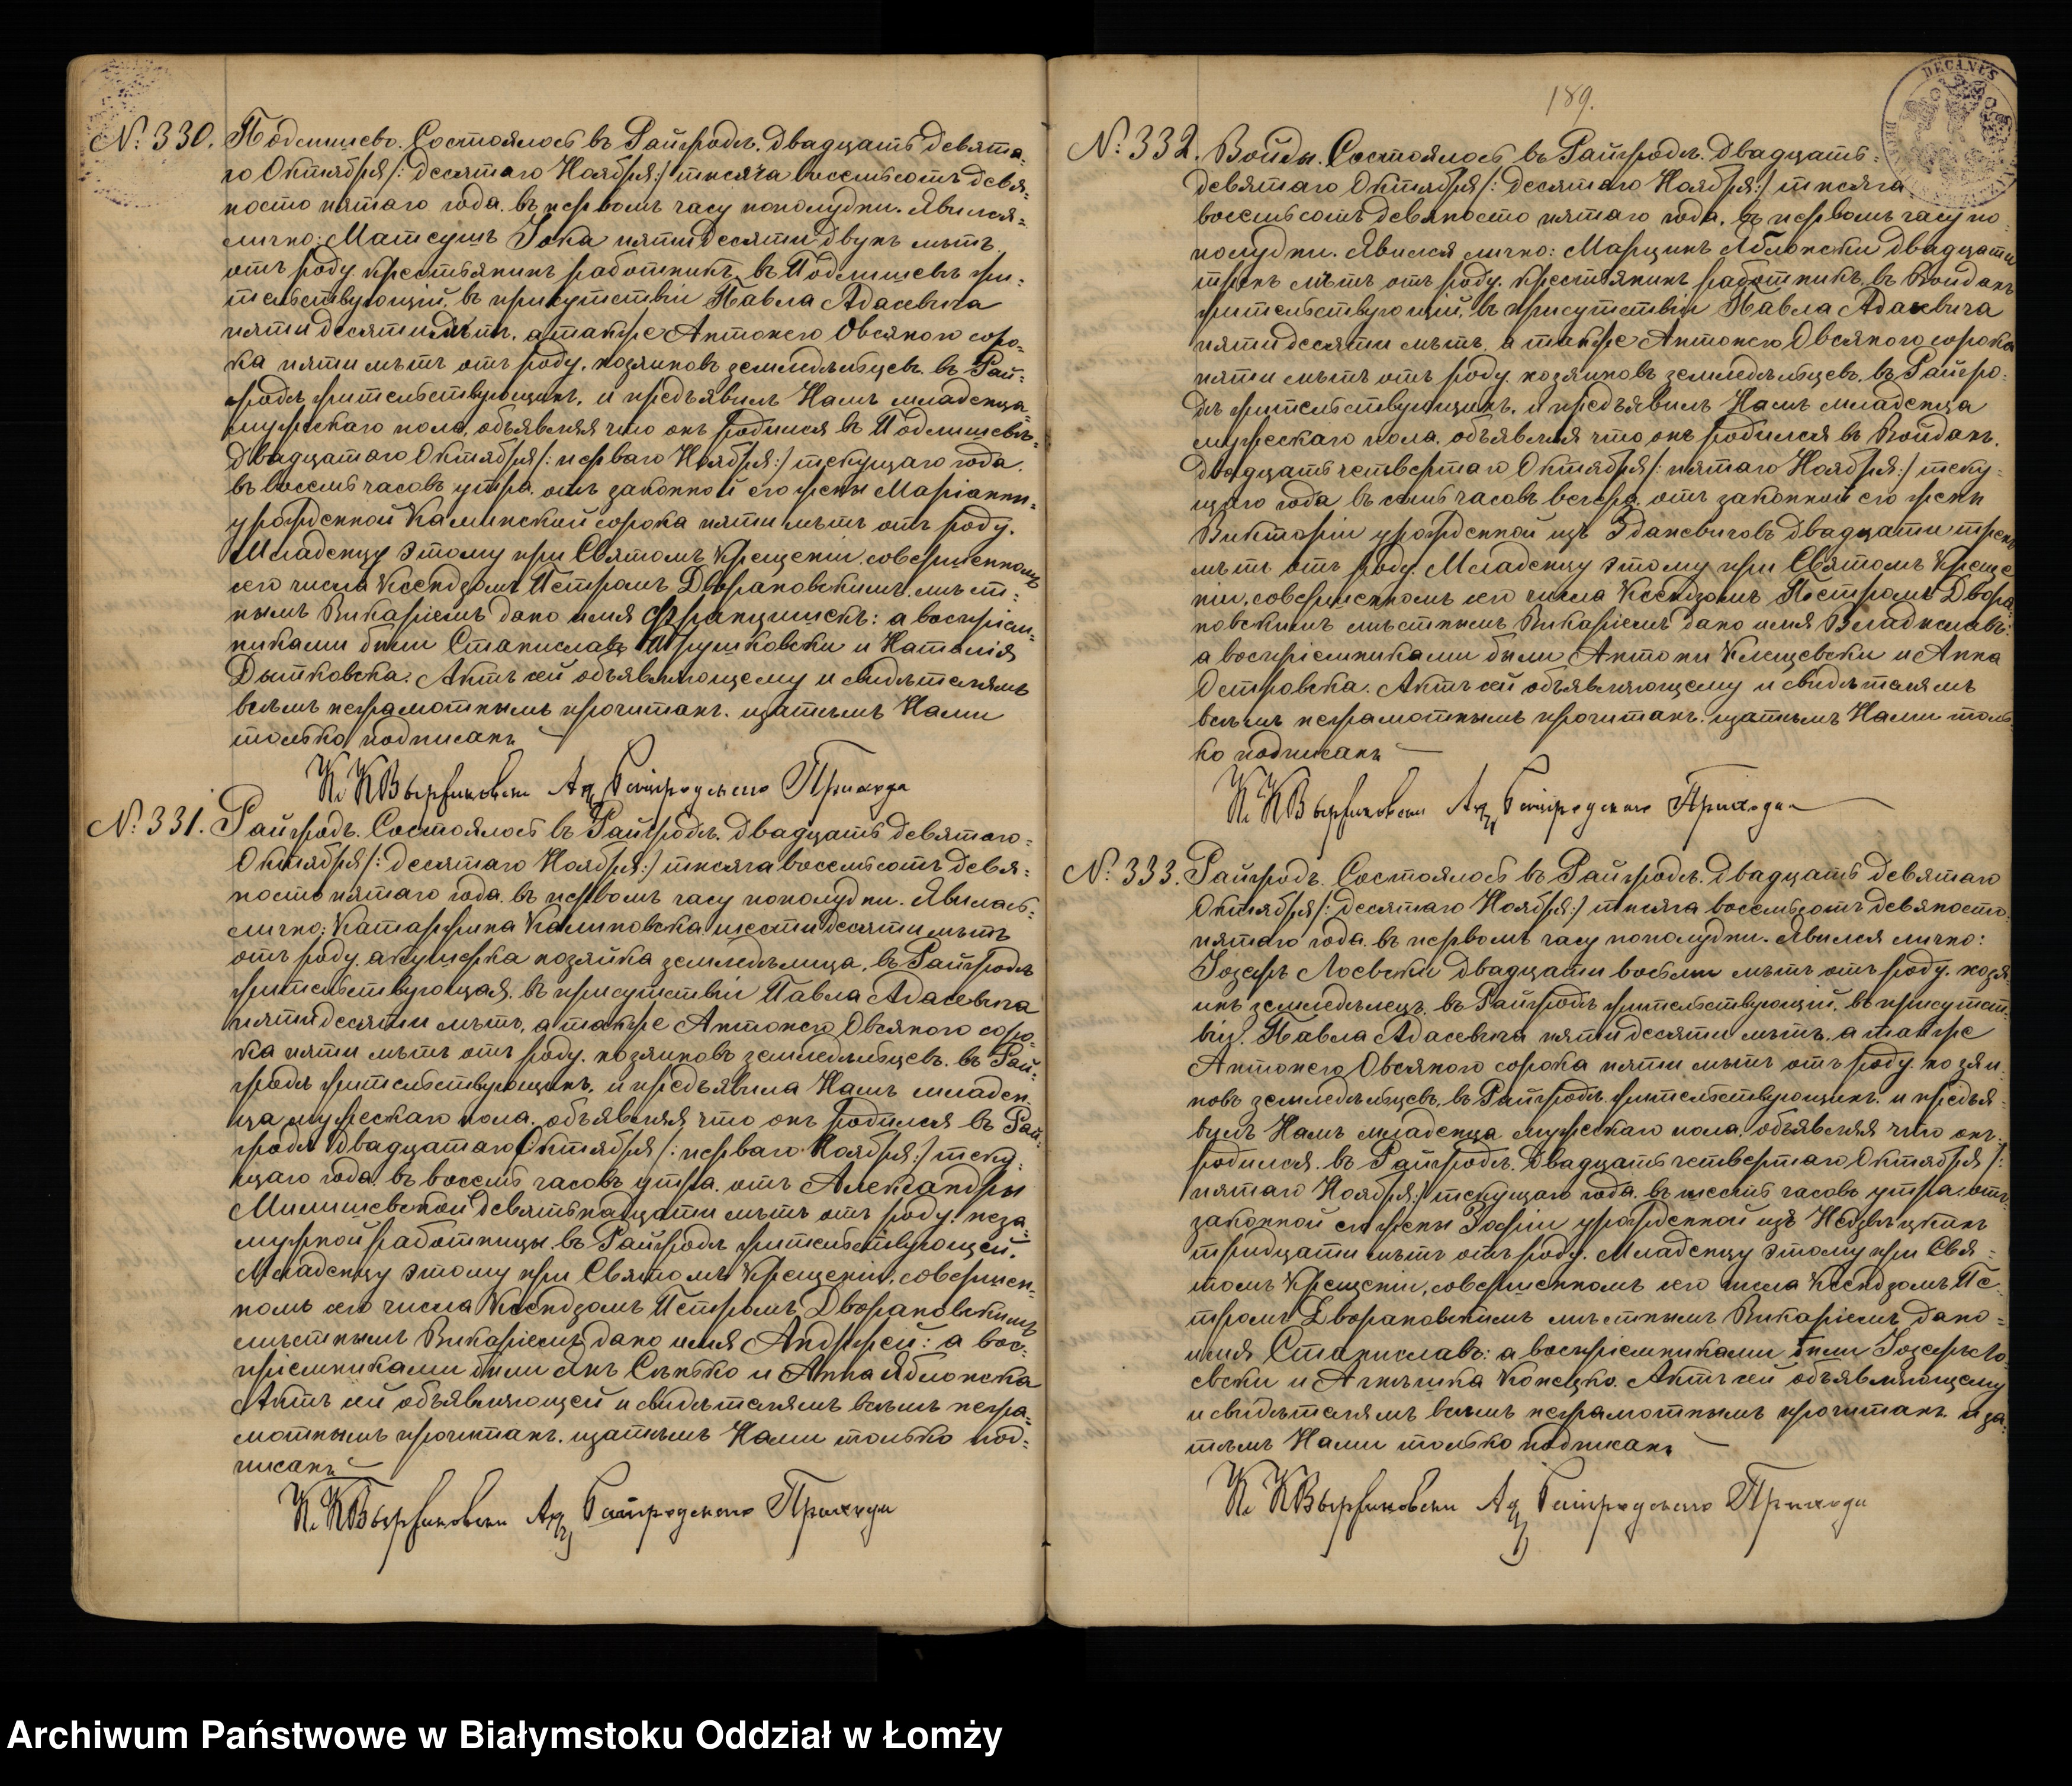 № 330. Подлишево. Состоялось въ Райгродѣ. Двадцать девята-
го Октября /: десятаго Ноября :/ тысяча восемьсотъ девя-
носто пятаго года. въ первомъ часу пополудни. Явился-
лично: Матеушъ Зока пятидесяти двухъ лѣтъ
отъ роду. крестьянинъ работникъ, въ Подлишевѣ жи-
тельствующій, въ присутствіи Павла Адасевича
пятидесяти лѣтъ, а также Антонего Овсяного соро-
ка пяти лѣтъ отъ роду, хозяиновъ земледѣльцевъ. въ Рай-
гродѣ жительствующихъ, и предъявилъ Намъ младенца
мужескаго пола, объявляя что онъ родился въ Подлишевѣ-
двадцатаго Октября /: перваго Ноября :/ текущаго года.
въ восемь часовъ утра. отъ законной его жены Маріанны-
урожденной Калинской сорока пяти лѣтъ отъ роду.
Младенцу этому при Святомъ Крещеніи, совершенномъ
сего числа Ксендзомъ Петромъ Двораковскимъ, мѣст-
нымъ Викаріемъ дано имя Францишекъ: а воспріем-
никами были Станиславъ Трушковски и Наталія
Дытковска. Актъ сей объявляющему и свидѣтелямъ
всѣмъ неграмотнымъ прочитанъ. затѣмъ Нами
только подписанъ
К. К Вержиковски Ад. Райгродскаго Прихода
№ 331. Райгродъ. Состоялось въ Райгродѣ. двадцать девятаго-
Октября /: десятаго Ноября :/ тысяча восемьсотъ девя-
носто пятаго года. въ первомъ часу пополудни. Явилась-
лично: Катаржина Калиновска шестидесяти лѣтъ
отъ роду. акушерка хозяйка земледѣлица, въ Райгродѣ
жительствующая. въ присутствіи Павла Адасевича
пятидесяти лѣтъ, а также Антонего Овсяного соро-
ка пяти лѣтъ отъ роду. хозяиновъ земледѣльцевъ. въ Рай-
гродѣ жительствующихъ, и предъявила Намъ младен-
ца мужескаго пола. объявляя что онъ родился въ Рай-
гродѣ двадцатаго Октября /: перваго Ноября :/ теку-
щаго года. въ восемь часовъ утра. отъ Александры
Милишевской девятьнадцати лѣтъ отъ роду. неза-
мужной работницы. въ Райгродѣ жительствующей.
Младенцу этому при Святомъ Крещеніи, совершен-
номъ сего числа Ксендзомъ Петромъ Двораковскимъ
мѣстнымъ Викаріемъ дано имя Андржей: а вос-
пріемниками были Янъ Сѣнько и Анна Яблонска
Актъ сей объявляющей и свидѣтелямъ всѣмъ негра-
мотнымъ прочитанъ. затѣмъ Нами только под-
писанъ
К. К Вержиковски Ад. Райгродскаго Прихода
189.
№ 332. Войды. Состоялось въ Райгродѣ. Двадцать-
девятаго Октября /: десятаго Ноября :/ тысяча
восемьсотъ девяносто пятаго года. въ первомъ часу по-
полудни. Явился лично: Марцинъ Яблонски двадцати
трехъ лѣтъ отъ роду. крестьянинъ работникъ, въ Войдахъ
жительствующій, въ присутствіи Павла Адасевича
пятидесяти лѣтъ, а также Антонего Овсяного сорока
пяти лѣтъ отъ роду. хозяиновъ земледѣльцевъ. въ Райгро-
дѣ жительствующихъ. и предъявилъ Намъ младенца
мужескаго пола. объявляя что онъ родился въ Войдахъ.
двадцать четвертаго Октября /: пятаго Ноября :/ теку-
щаго года въ семь часовъ вечера, отъ законной его жены
Викторіи урожденной изъ Зданевичовъ двадцати трехъ
лѣтъ отъ роду. Младенцу этому при Святомъ Креще-
ніи, совершенномъ сего числа Ксендзомъ Петромъ Двора-
ковскимъ мѣстнымъ Викаріемъ дано имя Владиславъ:
а воспріемниками были Антони Клещевски и Анна
Островска. Актъ сей объявляющему и свидѣтелямъ
всѣмъ неграмотнымъ прочитанъ. затѣмъ Нами толь-
ко подписанъ
К. К Вержиковски Ад. Райгродскаго Прихода
№ 333. Райгродъ. Состоялось въ Райгродѣ. Двадцать девятаго
Октября /: десятаго Ноября :/ тысяча восемьсотъ девяносто
пятаго года. въ первомъ часу пополудни. Явился лично:
Іозефъ Лоевски двадцати восьми лѣтъ отъ роду. хозя-
инъ земледѣлецъ. въ Райгродѣ жительствующій. въ присутст-
віи. Павла Адасевича пятидесяти лѣтъ. а также
Антонего Овсяного сорока пяти лѣтъ отъ роду. хозяи-
новъ земледѣльцевъ, въ Райгродѣ жительствующихъ. и предъя-
вилъ Намъ младенца мужескаго пола. объявляя что онъ-
родился въ Райгродѣ. двадцать четвертаго Октября /:
пятаго Ноября :/ текущаго года. въ шесть часовъ утра. отъ
законной его жены Зофіи урожденной изъ Недзвѣцкихъ
тридцати лѣтъ отъ роду. Младенцу этому при Свя-
томъ Крещеніи, совершенномъ сего числа Ксендзомъ Пе-
тромъ Двораковскимъ мѣстнымъ Викаріемъ, дано-
имя Станиславъ: а воспріемниками были Іозефъ Ло-
евски и Агнѣшка Конецко. Актъ сей объявляющему
и свидѣтелямъ всѣмъ неграмотнымъ прочитанъ и за-
тѣмъ Нами только подписанъ
К. К Вержиковски Ад. Райгродскаго Прихода
DECANUS
Archiwum Państwowe w Białymstoku Oddział w Łomży